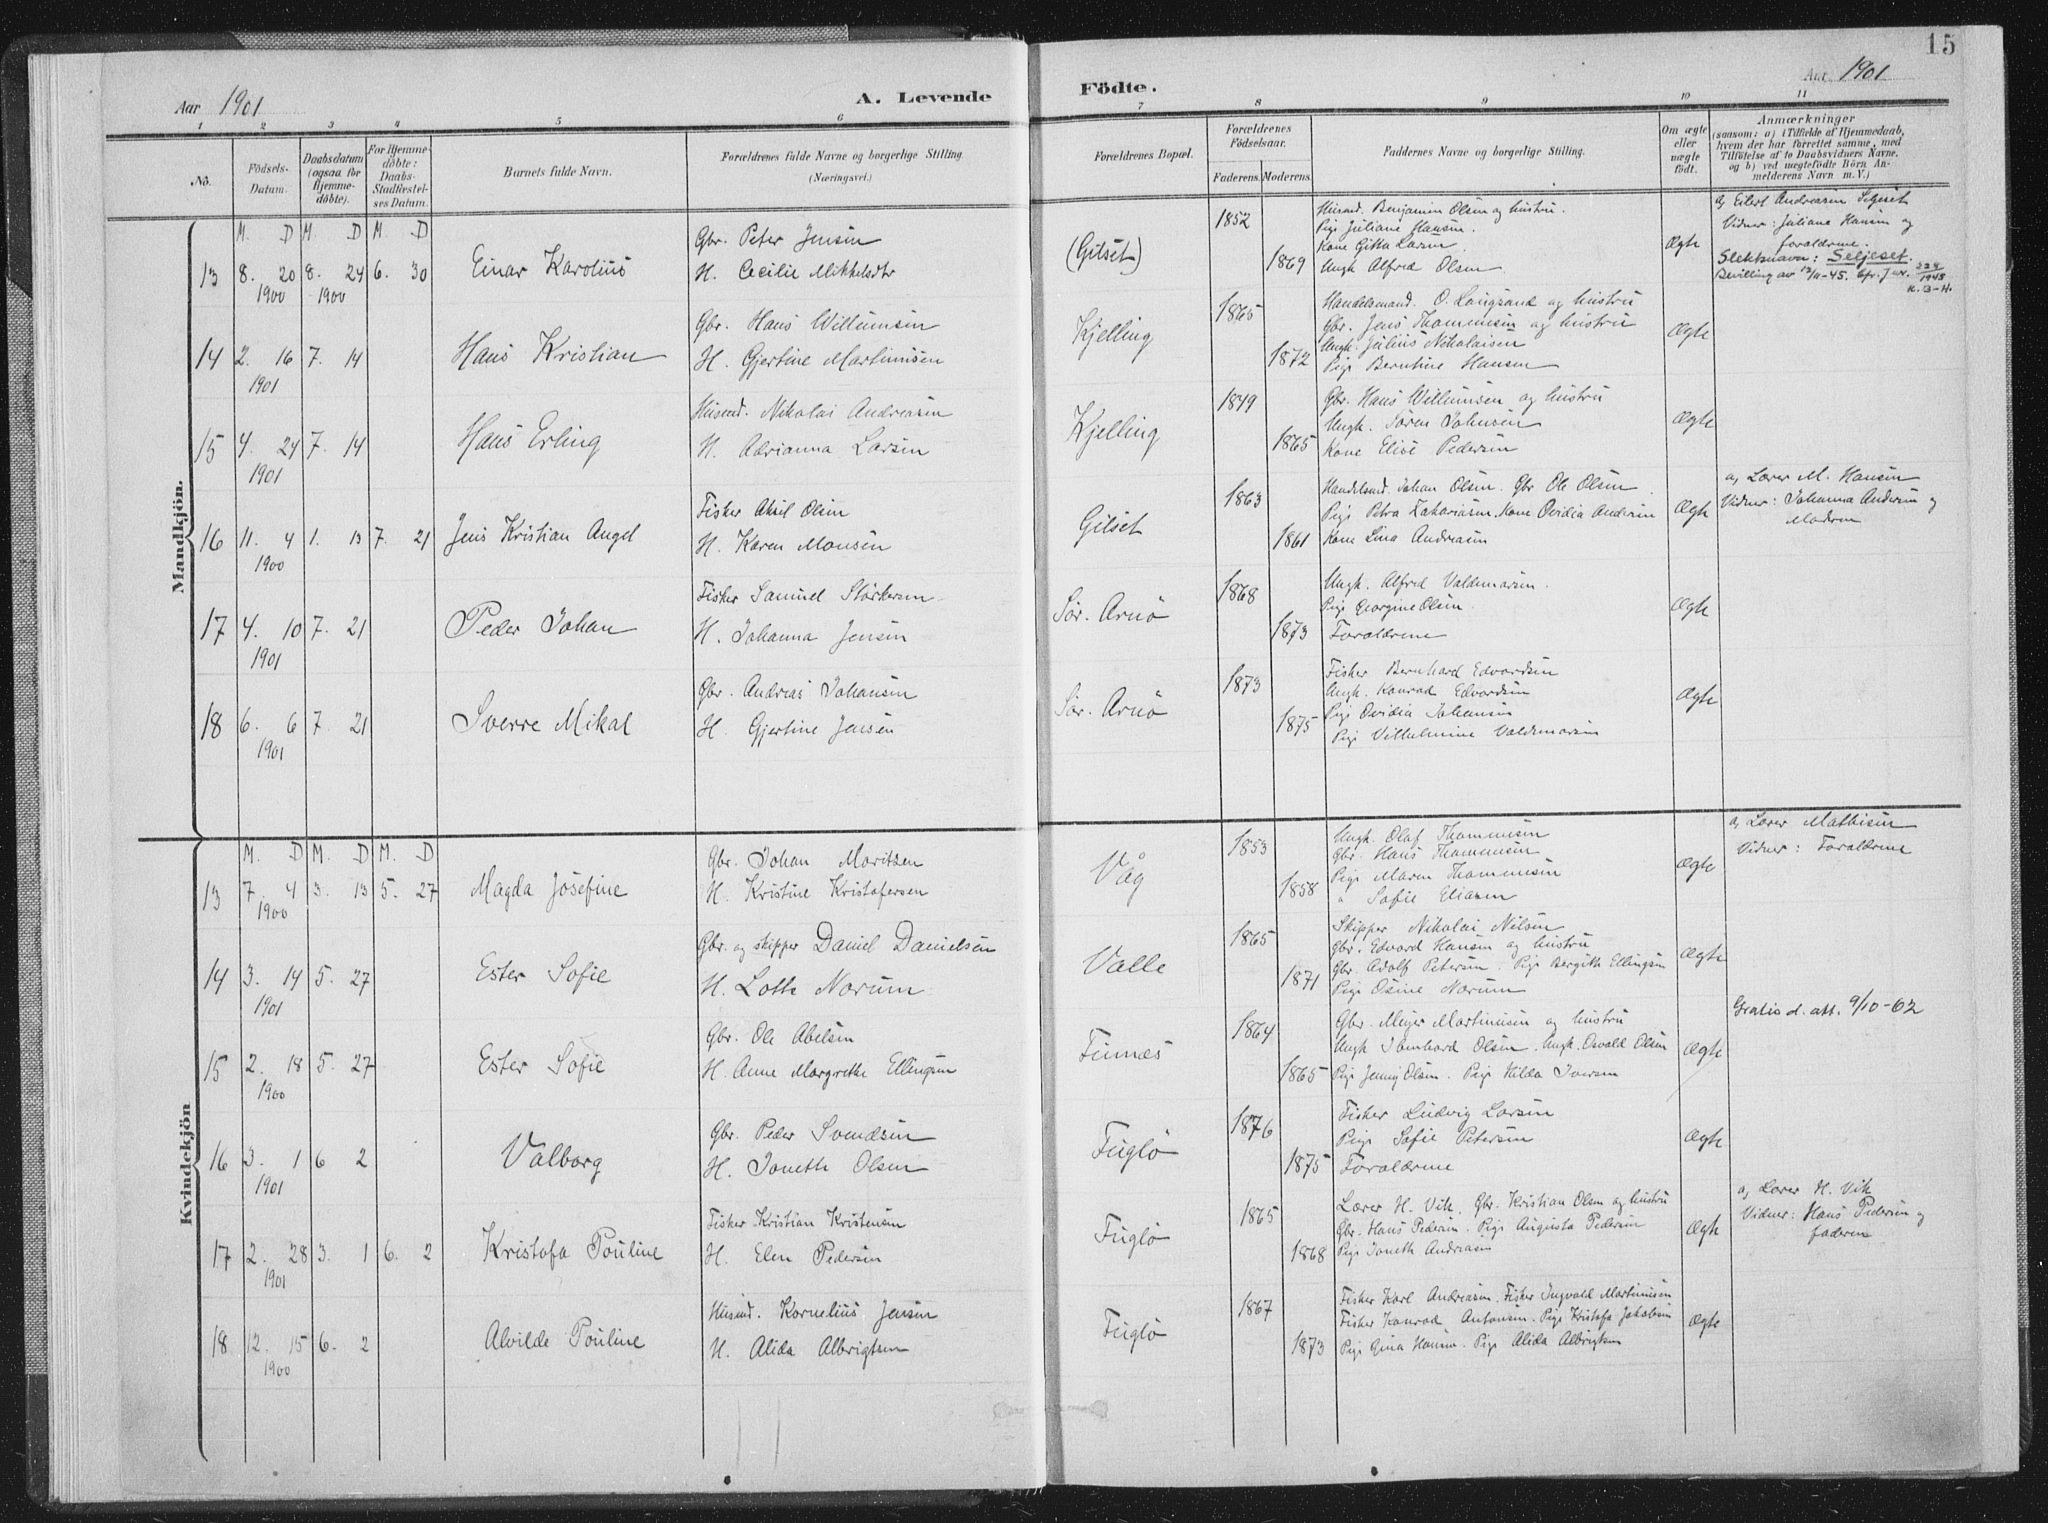 15
Aar 1901 A. Levende Födte. Aar 1901
1 2 3 4 5 6 7 8 9 10 11
No. Födsels-Datum. Daabsdatum (ogsaa for Hjemmedöbte). For Hjemmedöbte: Daabs-Stadfestelses Datum. Barnets fulde Navn. Forældrenes fulde Navne og borgerlige Stilling. (Næringsvei.) Forældrenes Bopæl. Forældrenes Födselsaar. Faderens. Moderens. Faddernes Navne og borgerlige Stilling. Om ægte eller uægte födt. Anmærkninger (saasom: a) i Tilfælde af Hjemmedaab, hvem der har forrettet samme, med Tilföielse af to Daabsvidners Navne, og b) ved uægtefödte Börn Anmelderens Navn m. V.)
Mandkjön.
M. D M. D M. D
13 8. 20 1900 8. 24 1900 6. 30 Einar Karolius
Gbr. Peter Jensen
H. Cecilie Mikkelsdtr
(Gilset) 1852 1869
Husmd. Benjamin Olsen og hustru.
Pige Juliane Hansen.
Kone Gitta Larsen.
Ungk Alfred Olsen
Ægte
a) Eilert Andreasen Seljeset
Vidner: Juliane Hansen og
forældrene.
Slektsnavn: Seljeset.
Bevilling av 13/11-45. Cfr. J nr. 228/1945 K.3-H.
14 2. 16 1901 7. 14 Hans Kristian
Gbr. Hans Willumsen
H. Gjertine Martinusen
Kjelling 1865 1872
Handelsmand. O. Langsand og hustru
Gbr. Jens Thommesen og hustru
Ungk. Julius Nikolaisen
Pige Berntine Hansen
Ægte
15 4. 24 1901 7. 14 Hans Erling
Husmd. Nikolai Andreasen
H. Adrianna Larsen
Kjelling 1849 1865
Gbr. Hans Willumsen og hustru
Ungk. Sören Johnsen
Kone Elise Pedersen
Ægte
16 11. 4 1900 1. 13 7. 21 Jens Kristian Angel
Fisker Aksil Olsen
H. Karen Monsen
Gilset 1863 1861
Handelsmd. Johan Olsen. Gbr Ole Olsen
Pige Petra Zakariasen. Kone Ovidia Andersen
Kone Lina Andreasen
Ægte
a) Lærer M. Hansen
Vidner: Johanna Andersen og
Moderen
17 4. 10 1901 7. 21 Peder Johan
Fisker Samuel Störkersen
H. Johanna Jensen
Sör. Arnö 1868 1873
Ungk. Alfred Valdemarsen.
Pige Georgine Olsen.
Forældrene
Ægte
18 6. 6 1901 7. 21 Sverre Mikal
Gbr. Andreas Johansen
H. Gjertine Jensen
Sör. Arnö 1873 1875
Fisker Bernhard Edvardsen
Ungk. Konrad Edvardsen
Pige Ovidia Johansen
Pige Vilhelmine Valdemarsen
Ægte
Kvindekjön
M. D M. D M. D
13 7. 4 1900 3. 13 5. 27 Magda Josefine
Gbr. Johan Moritzen
H. Kristine Kristofersen
Våg 1853 1858
Ungk. Olaf Thommesen
Gbr. Hans Thommesen
Pige Maren Thommesen
" Sofie Eliasen
Ægte
a) Lærer Mathisen
Vidner: Forældrene
14 3. 14 1901 5. 27 Ester Sofie
Gbr. og skipper Daniel Danielsen
H. Lotte Norum
Valle 1865 1871
Skipper Nikolai Nilsen
Gbr. Edvard Hansen og hustru
Gbr. Adolf Petersen. Pige Bergith Ellingsen
Pige Osine Norum
Ægte
15 2. 18 1900 5. 27 Ester Sofie
Gbr. Ole Abelsen
H. Anne Margrethe Ellingsen
Finnæs 1864 1865
Gbr. Meyer Martinusen og hustru
Ungk Jomhard Olsen. Ungk. Osvald Olsen
Pige Jenny Olsen. Pige Hilda Iversen
Ægte
Gratis d. att. 9/10-62
16 3. 1 1901 6 2 Valborg
Gbr. Peder Svendsen
H. Jonette Olsen
Fuglö 1876 1875
Fisker Ludvig Larsen
Pige Sofie Petersen
Forældrene
Ægte
17 2. 28 1901 3. 1 6. 2 Kristofa Pouline
Fisker Kristian Kristensen
H. Elen Pedersen
Fuglö 1865 1868
Lærer H. Vik. Gbr. Kristian Olsen og hustru
Gbr. Hans Pedersen. Pige Augusta Pedersen
Pige Joneth Andreasen
Ægte
a) Lærer H. Vik
Vidner: Hans Pedersen og
faderen
18 12. 15 1900 6. 2 Alvilde Pouline
Husmd. Kornelius Jensen
H. Alida Albrigtsen
Fuglö 1867 1873
Fisker Karl Andreasen. Fisker Ingvald Martinusen
Fisker Konrad Antonsen. Pige Kristofa Jakobsen
Pige Gina Hansen. Pige Alida Albrigtsen
Ægte